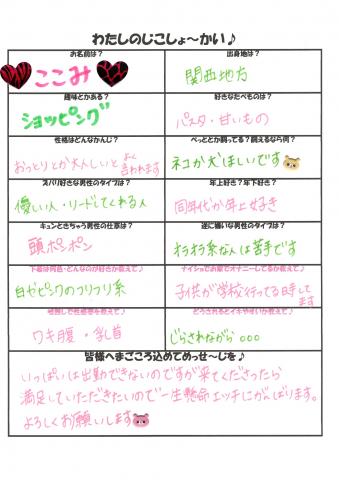 わたしのじこしょ～かい♪
お名前は？
出身地は？
ここみ
関西地方
趣味とかある？
好きなたべものは？
ショッピング
パスタ・甘いもの
性格はどんなかんじ？
ぺっととか飼ってる？飼えるなら何？
おっとりとか大人しいとよく言われます
ネコか犬ほしいです
ズバリ好きな男性のタイプは？
年上好き？年下好き？
優しい人・リードしてくれる人
同年代か年上好き
キュンときちゃう男性の仕草は？
逆に嫌いな男性のタイプは？
頭ポンポン
オラオラ系な人は苦手です
下着は何色・どんなのが好きか教えて♪
ナイショでお家でオナニーしてるか教えて♪
白やピンクのフリフリ系
子供が学校行ってる時してます
性感帯を教えて♪
どうされるとイキやすいか教えて♪
ワキ腹・乳首
じらされながら。。。
皆様へまごころ込めてめっせ～じを♪
いっぱいは出勤できないのですが来てくださったら
満足していただきたいので一生懸命エッチにがんばります。
よろしくお願いします